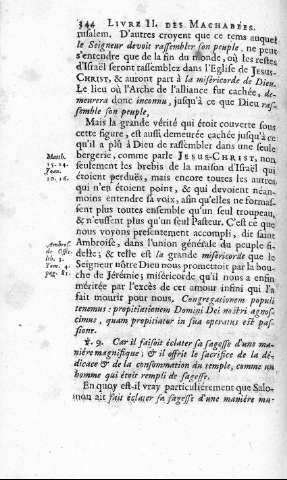 344 LIVRE II. DES MACHABÉES.
rusalem. D'autres croyent que ce tems auquel
le Seigneur devoit rassembler son peuple, ne peut
s'entendre que de la fin du monde, où les restes
d'Israël seront rassemblez dans l'Eglise de JESUS-
CHRIST, & auront part à la miséricorde de Dieu.
Le lieu où l'Arche de l'alliance fut cachée, de-
meurera donc inconnu, jusqu'à ce que Dieu ras-
semble son peuple,
Mais la grande vérité qui étoit couverte sous
cette figure, est aussi demeurée cachée jusqu'à ce
qu'il a plû à Dieu de rassembler dans une seule
bergerie, comme parle JESUS-CHRIST, non
seulement les brebis de la maison d'Israël qui
étoient perduës, mais encore toutes les autres
qui n'en étoient point, & qui devoient néan-
moins entendre sa voix, afin qu'elles ne formas-
sent plus toutes ensemble qu'un seul troupeau,
& n'eussent plus qu'un seul Pasteur. C'est ce que
nous voyons presentement accompli, dit saint
Ambroise, dans l'union générale du peuple fi-
delle; & telle est la grande miséricorde que le
Seigneur nôtre Dieu nous promettoit par la bou-
che de Jérémie; miséricorde qu'il nous a enfin
méritée par l'excès de cet amour infini qui l'a
fait mourir pour nous. Congregationem populi
tenemus: propitiationem Domini Dei nostri agnos-
cimus, quam propitiator in sua operatus est pas-
sione.
℣. 9. Car il faisoit éclater sa sagesse d'une ma-
niére magnifique; & il offrit le sacrifice de la dé-
dicace & de la consommation du temple, comme un
homme qui étoit rempli de sagesse.
En quoy est-il vray particuliérement que Salo-
mon ait fait éclater sa sagesse d'une maniére ma-
Matth.
15. 24.
Joan.
10. 16.
Ambros.
de Offic.
lib. 3.